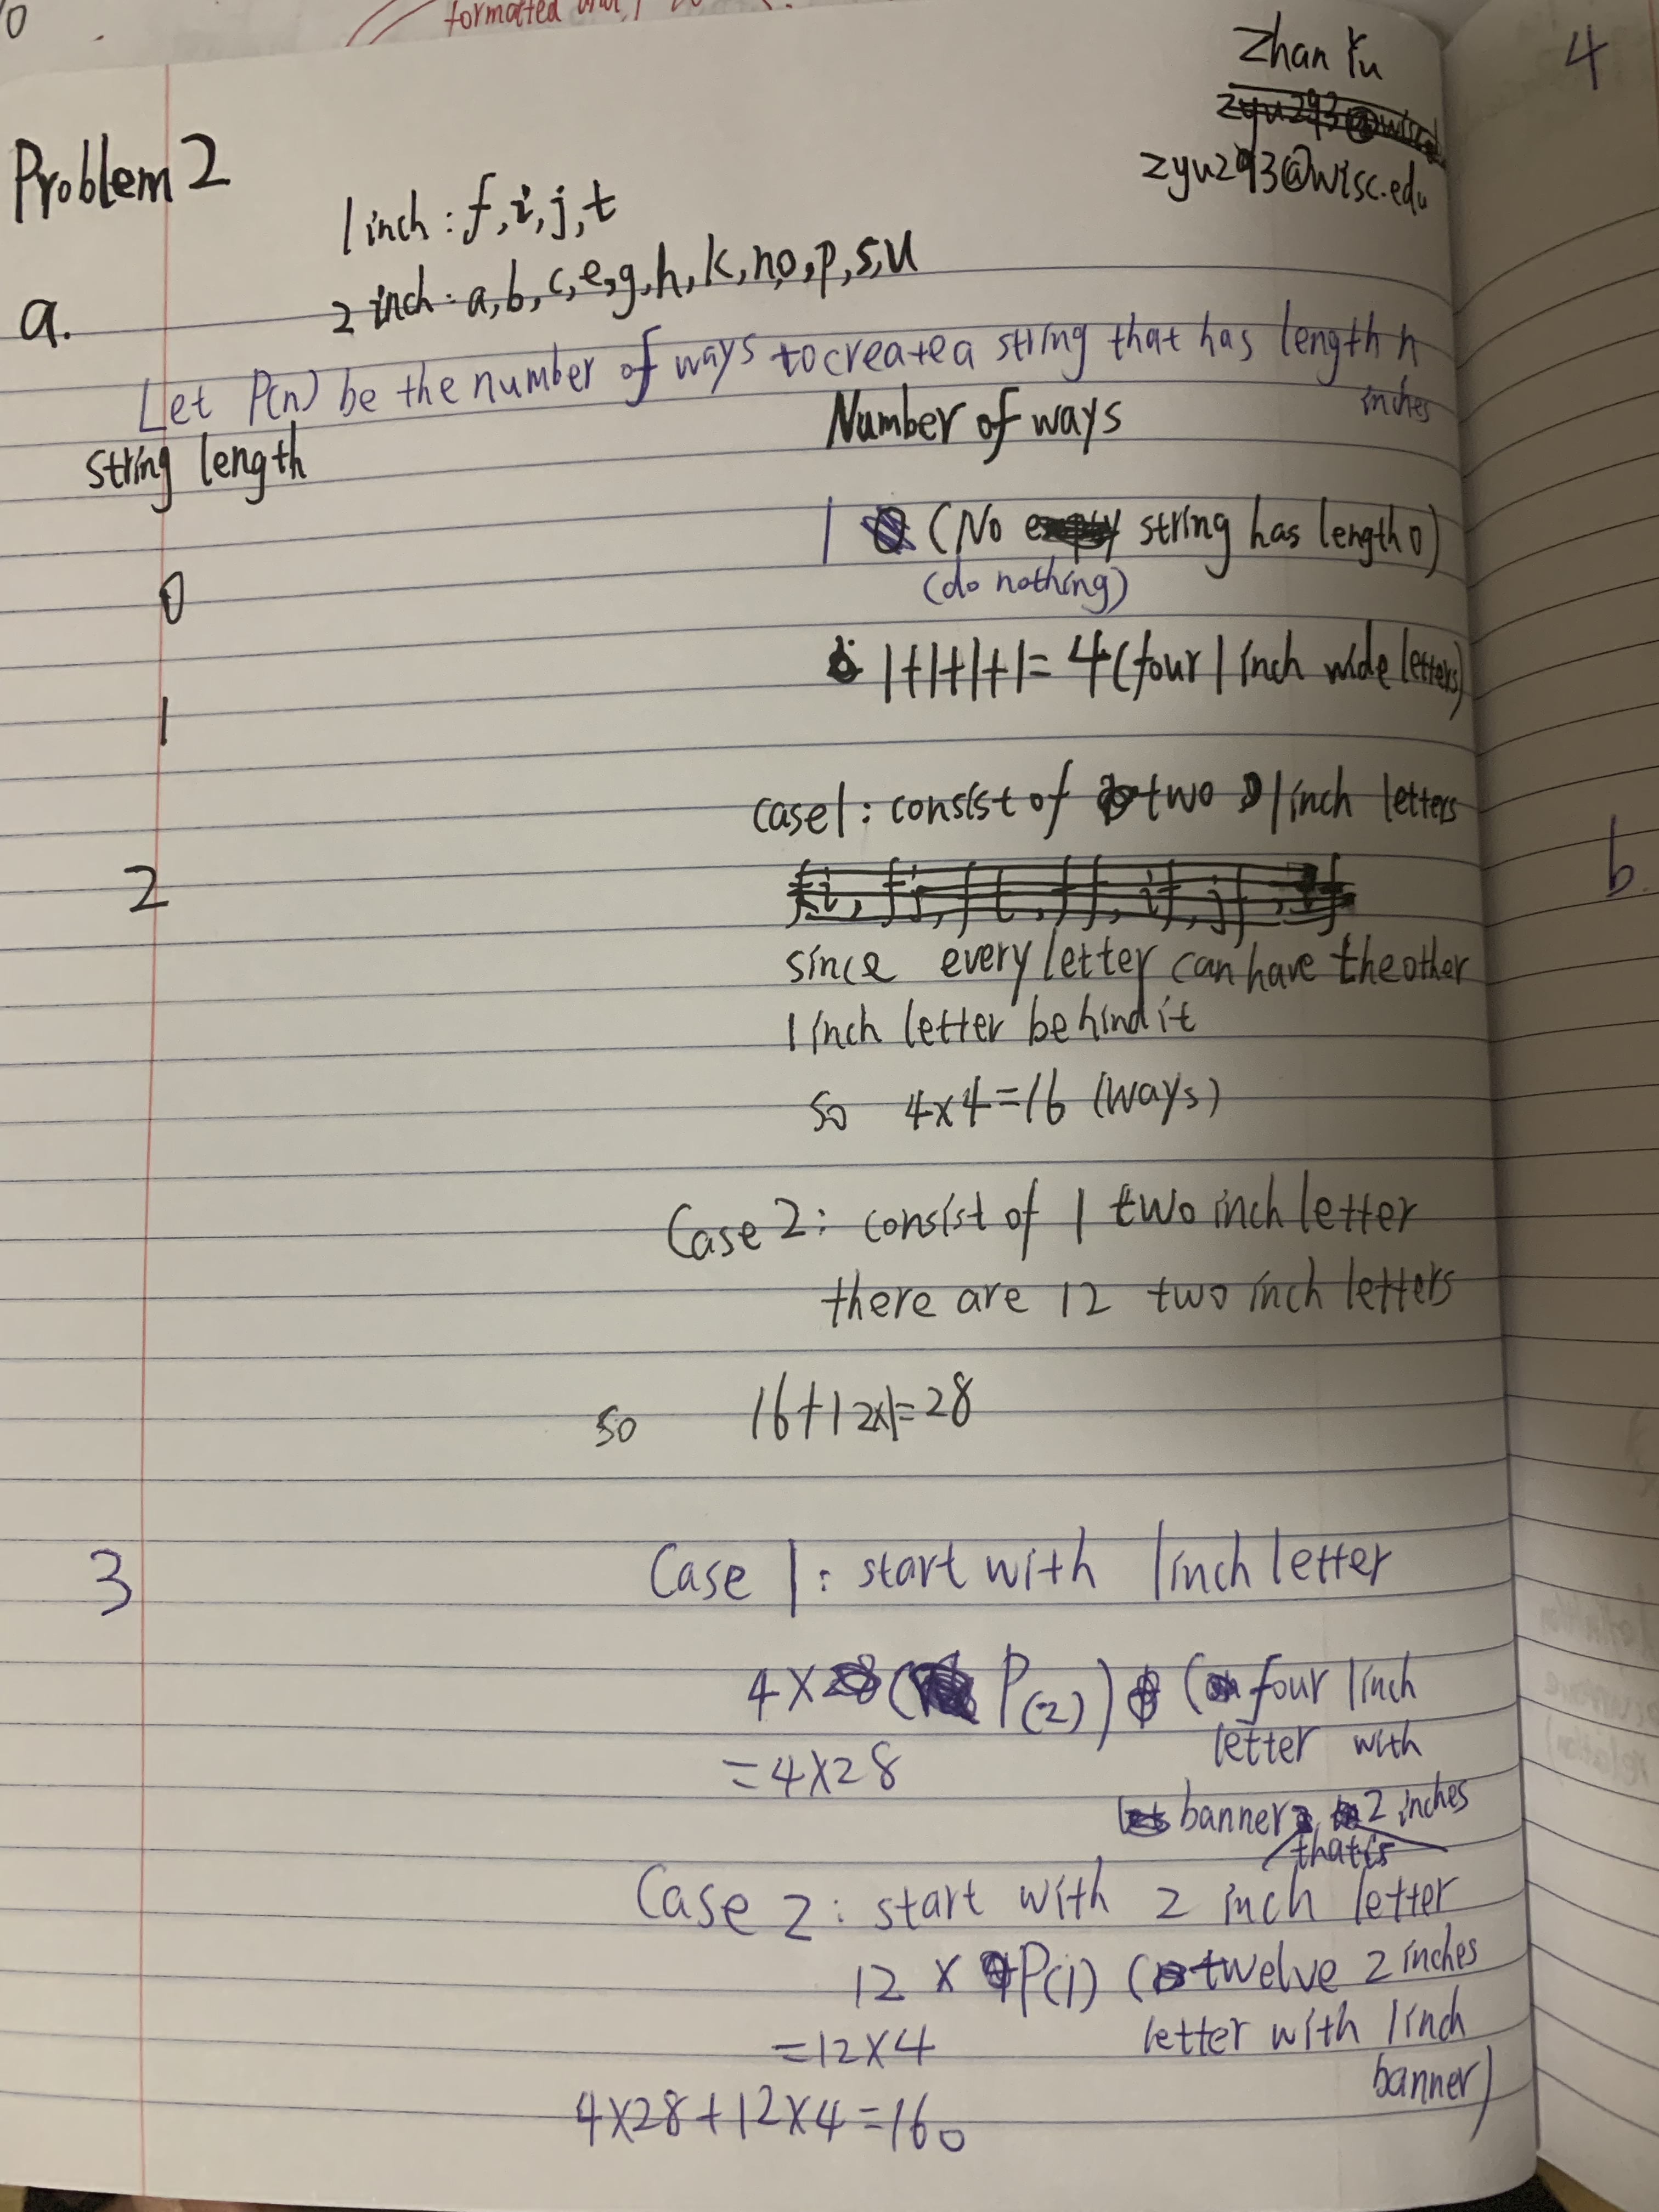 formatted
Zhan Yu
zyu293@wisc.edu
4
Problem 2
1 inch : f, i, j, t
2 inch : a, b, c, e, g, h, k, n, o, p, s, u
a.
Let P(n) be the number of ways to create a string that has length n
inches
string length
Number of ways
0
1 (No string has length 0)
(do nothing)
1
1+1+1+1=4 (four 1 inch wide letters)
2
case1: consist of two 1 inch letters
b.
since every letter can have the other
1 inch letter behind it
so 4×4=16 (ways)
Case 2: consist of 1 two inch letter
there are 12 two inch letters
so 16+12×1=28
3
Case 1: start with 1 inch letter
4× (P(2)) (four 1 inch
letter with
=4×28
banner that is 2 inches
Case 2: start with 2 inch letter
12 × P(1) (twelve 2 inches
=12×4 letter with 1 inch
banner)
4×28+12×4=160